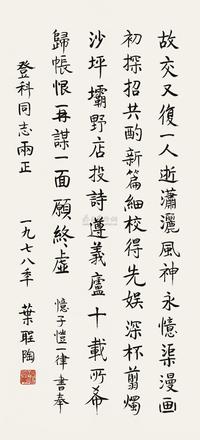 故交又復一人逝瀟灑風神永憶渠漫画
初探招共酌新篇細校得先娱深杯剪燭
沙坪壩野店投詩遵義廬十載所希
歸帳恨再謀一面願終虛
憶子愷一律書奉
登科同志兩正
一九七八年
葉聖陶